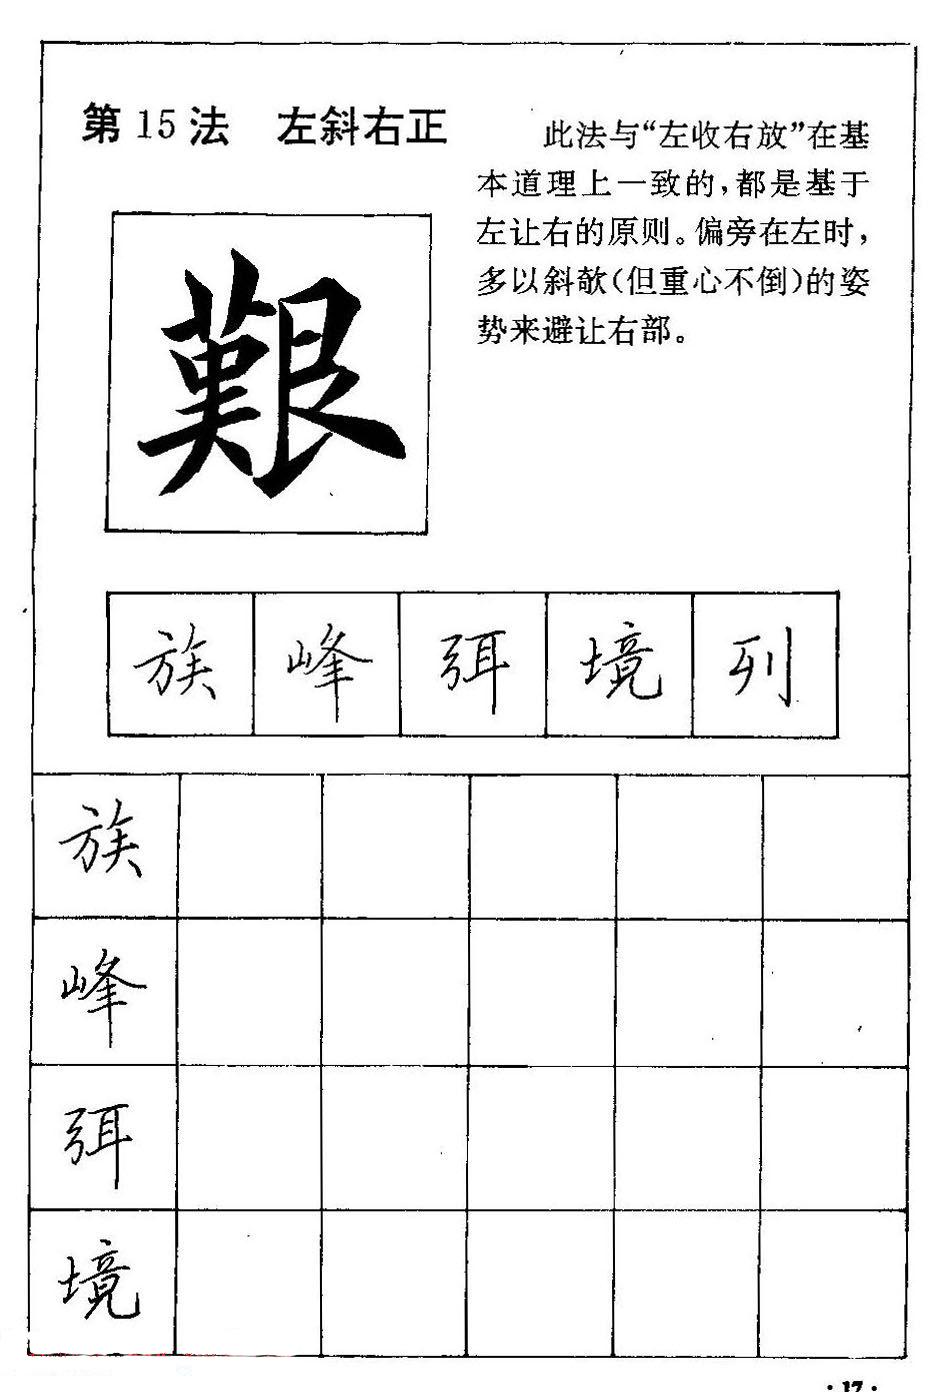 第15法 左斜右正
此法与“左收右放”在基
本道理上一致的，都是基于
左让右的原则。偏旁在左时，
多以斜欹（但重心不倒）的姿
势来避让右部。
艱
族 峰 弭 境 列
族
峰
弭
境
·17·